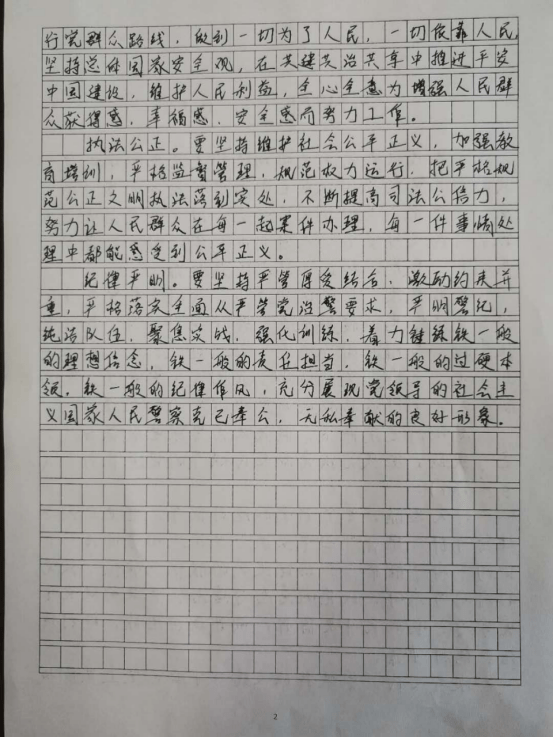 行党群众路线，做到一切为了人民，一切依靠人民，
坚持总体国家安全观，在共建共治共享中推进平安
中国建设，维护人民利益，全心全意为增强人民群
众获得感、幸福感、安全感而努力工作。
执法公正。要坚持维护社会公平正义，加强教
育培训，严格监督管理，规范权力运行，把严格规
范公正文明执法落到实处，不断提高司法公信力，
努力让人民群众在每一起案件办理，每一件事情处
理中都能感受到公平正义。
纪律严明。要坚持严管厚爱结合、激励约束并
重，严格落实全面从严管党治警要求，严明警纪，
纯洁队伍，聚焦实战，强化训练，着力锤炼铁一般
的理想信念，铁一般的责任担当，铁一般的过硬本
领，铁一般的纪律作风，充分展现党领导的社会主
义国家人民警察克己奉公、无私奉献的良好形象。
2